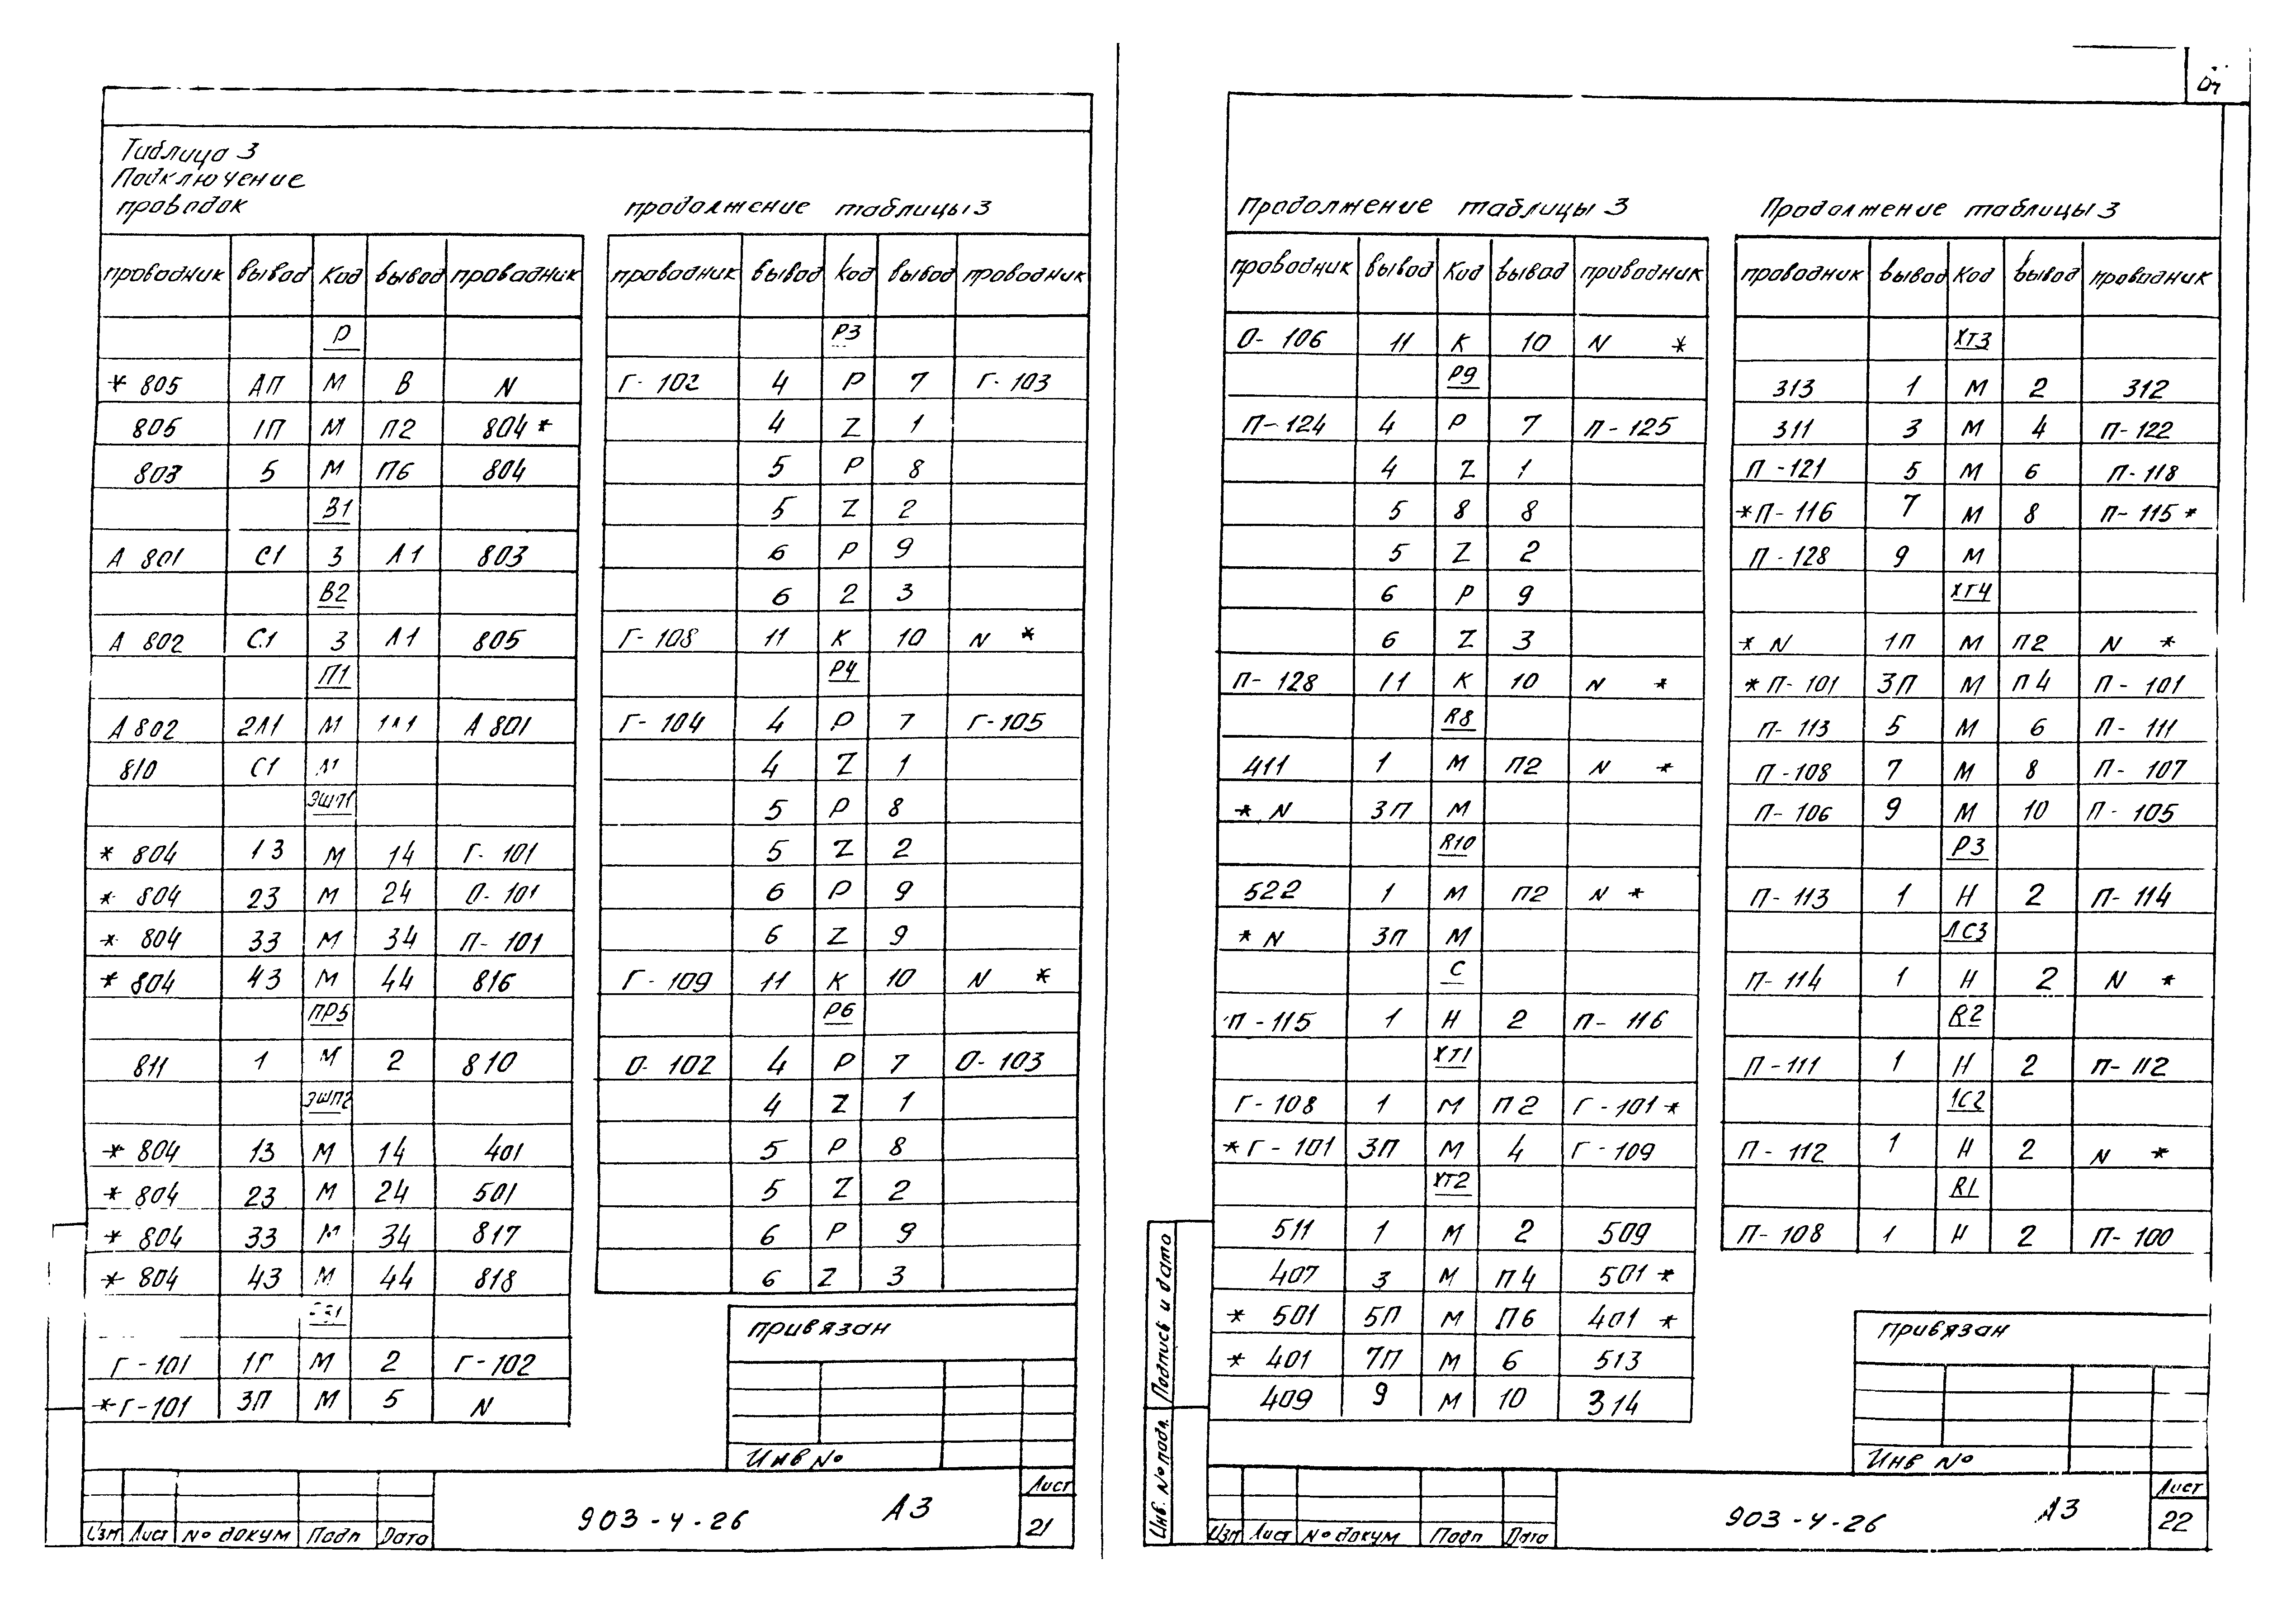 Таблица 3
Подключение
проводок
проводник вывод Код вывод проводник
Р
* 805 АП М В N
805 1П М П2 804 *
803 5 М П6 804
В1
А 801 С1 З Л1 803
В2
А 802 С1 З Л1 805
П1
А 802 2Л1 М 1Л1 А 801
810 С1 Л1
ЭШП1
* 804 13 М 14 Г-101
* 804 23 М 24 О-101
* 804 33 М 34 П-101
* 804 43 М 44 816
ПР5
811 1 М 2 810
ЭШП2
* 804 13 М 14 401
* 804 23 М 24 501
* 804 33 М 34 817
* 804 43 М 44 818
Г-101 1Г М 2 Г-102
* Г-101 3П М 5 N
продолжение таблицы 3
проводник вывод код вывод проводник
Р3
Г-102 4 Р 7 Г-103
4 Z 1
5 Р 8
5 Z 2
6 Р 9
6 2 3
Г-108 11 К 10 N *
Р4
Г-104 4 Р 7 Г-105
4 Z 1
5 Р 8
5 Z 2
6 Р 9
6 Z 9
Г-109 11 К 10 N *
Р6
О-102 4 Р 7 О-103
4 Z 1
5 Р 8
5 Z 2
6 Р 9
6 Z 3
привязан
Инв №
Изм Лист № докум Подп Дата
903-4-26 А3
Лист
21
04
Продолжение таблицы 3
проводник вывод Код вывод проводник
О-106 11 К 10 N *
Р9
П-124 4 Р 7 П-125
4 Z 1
5 8 8
5 Z 2
6 Р 9
6 Z 3
П-128 11 К 10 N *
R8
411 1 М П2 N *
* N 3П М
R10
522 1 М П2 N *
* N 3П М
С
П-115 1 Н 2 П-116
ХТ1
Г-108 1 М П2 Г-101 *
* Г-101 3П М 4 Г-109
ХТ2
511 1 М 2 509
407 3 М П4 501 *
* 501 5П М П6 401 *
* 401 7П М 6 513
409 9 М 10 314
Продолжение таблицы 3
проводник вывод Код вывод проводник
ХТ3
313 1 М 2 312
311 3 М 4 П-122
П-121 5 М 6 П-118
* П-116 7 М 8 П-115 *
П-128 9 М
ХТ4
* N 1П М П2 N *
* П-101 3П М П4 П-101
П-113 5 М 6 П-111
П-108 7 М 8 П-107
П-106 9 М 10 П-105
Р3
П-113 1 Н 2 П-114
ЛС3
П-114 1 Н 2 N *
R2
П-111 1 Н 2 П-112
1С2
П-112 1 Н 2 N *
R1
П-108 1 Н 2 П-100
привязан
Инв №
Инв. № подл. Подпись и дата
Изм Лист № докум Подп Дата
903-4-26 А3
Лист
22